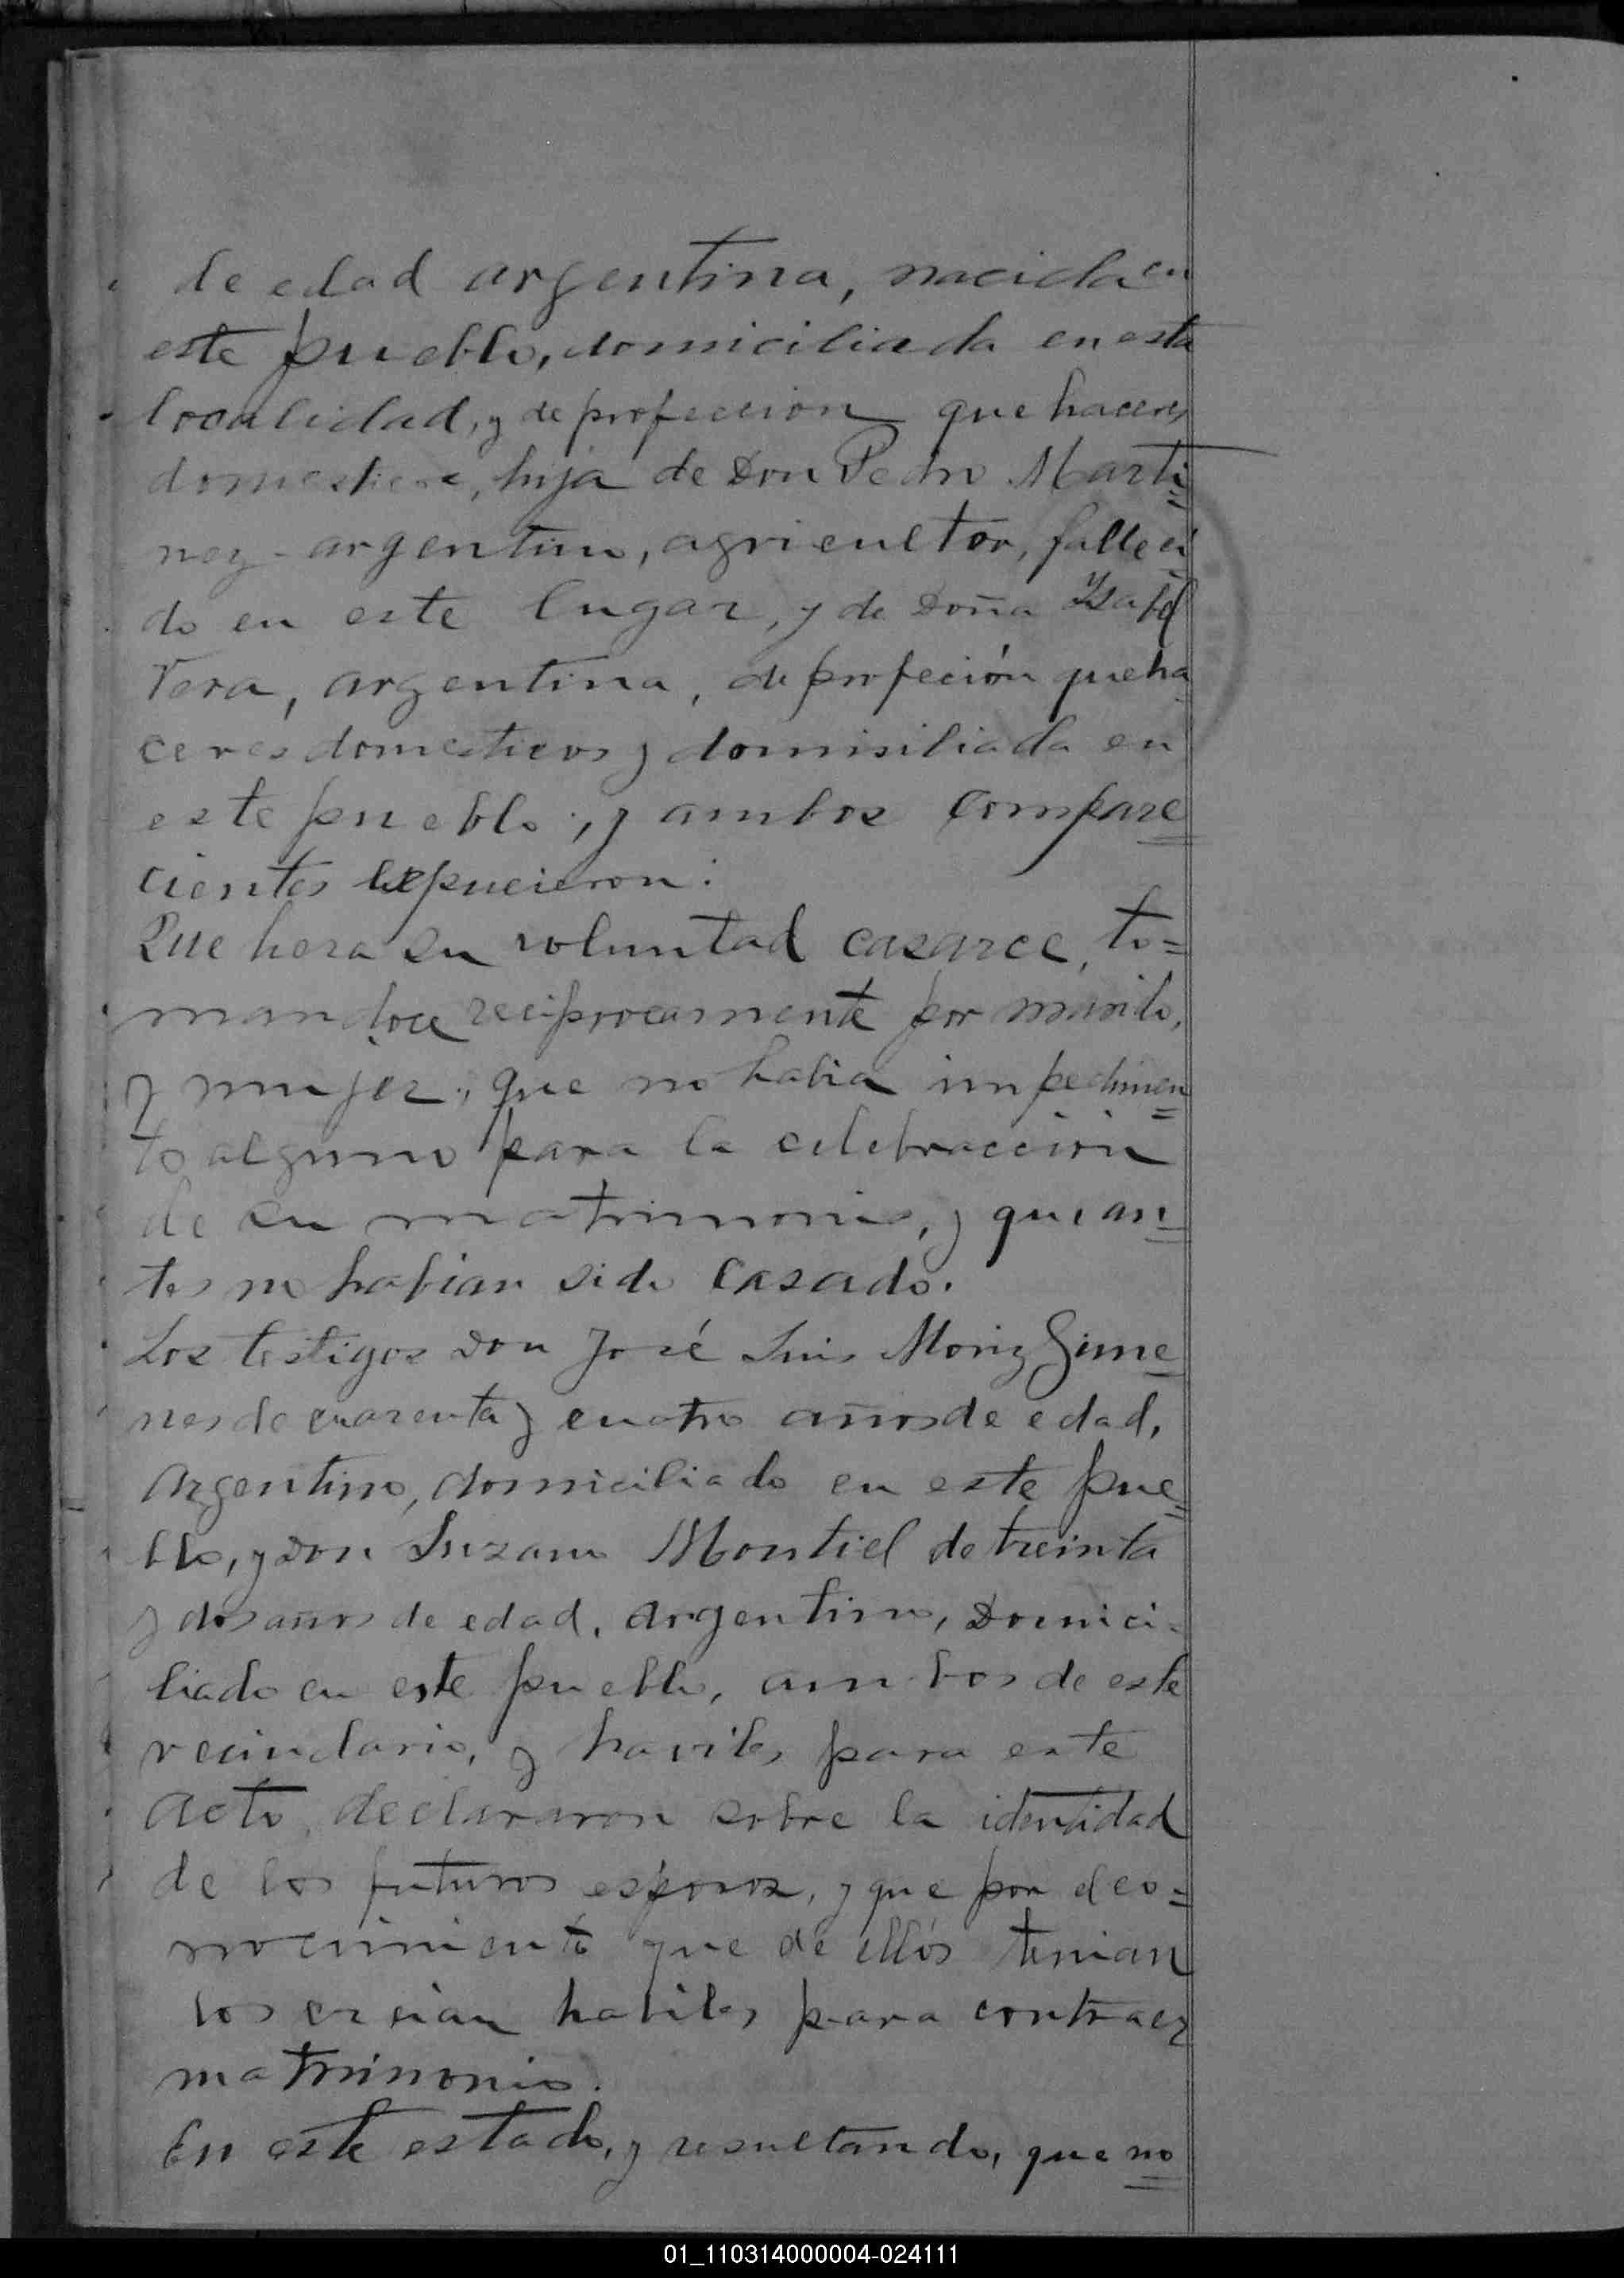 de edad argentina, nacida en
este pueblo, domiciliada en esta
localidad, y de profeccion que haceres
domesticos, hija de Don Pedro Marti=
nez argentino, agricultor, falleci
do en este lugar, y de Doña Ysabel
Vera, argentina, de profeción queha
ceres domesticos y domisiliada en
este pueblo, y ambos compare
cientes expucieron:
Que hera su voluntad casarce, to=
mandoce reciprocamente por marido,
y mujer, que no habia impedimen=
to alguno para la celebraccion
de su matrimonio, y que an=
tes no habian sido casado.
Los testigos Don José Luis Gime=
nes de cuarenta y cuatro años de edad,
argentino, domiciliado en este pue=
blo, y Don Montiel de treinta
y dos años de edad, argentino, Domici=
liado en este pueblo, ambos de este
vecindario, y haviles para este
acto, declararon sobre la identidad
de los futuros esposos, y que por el co=
nocimiento que de ellos tenian
los creian habiles para contraer
matrimonio.
En este estado, y resultando, que no
01_110314000004-024111